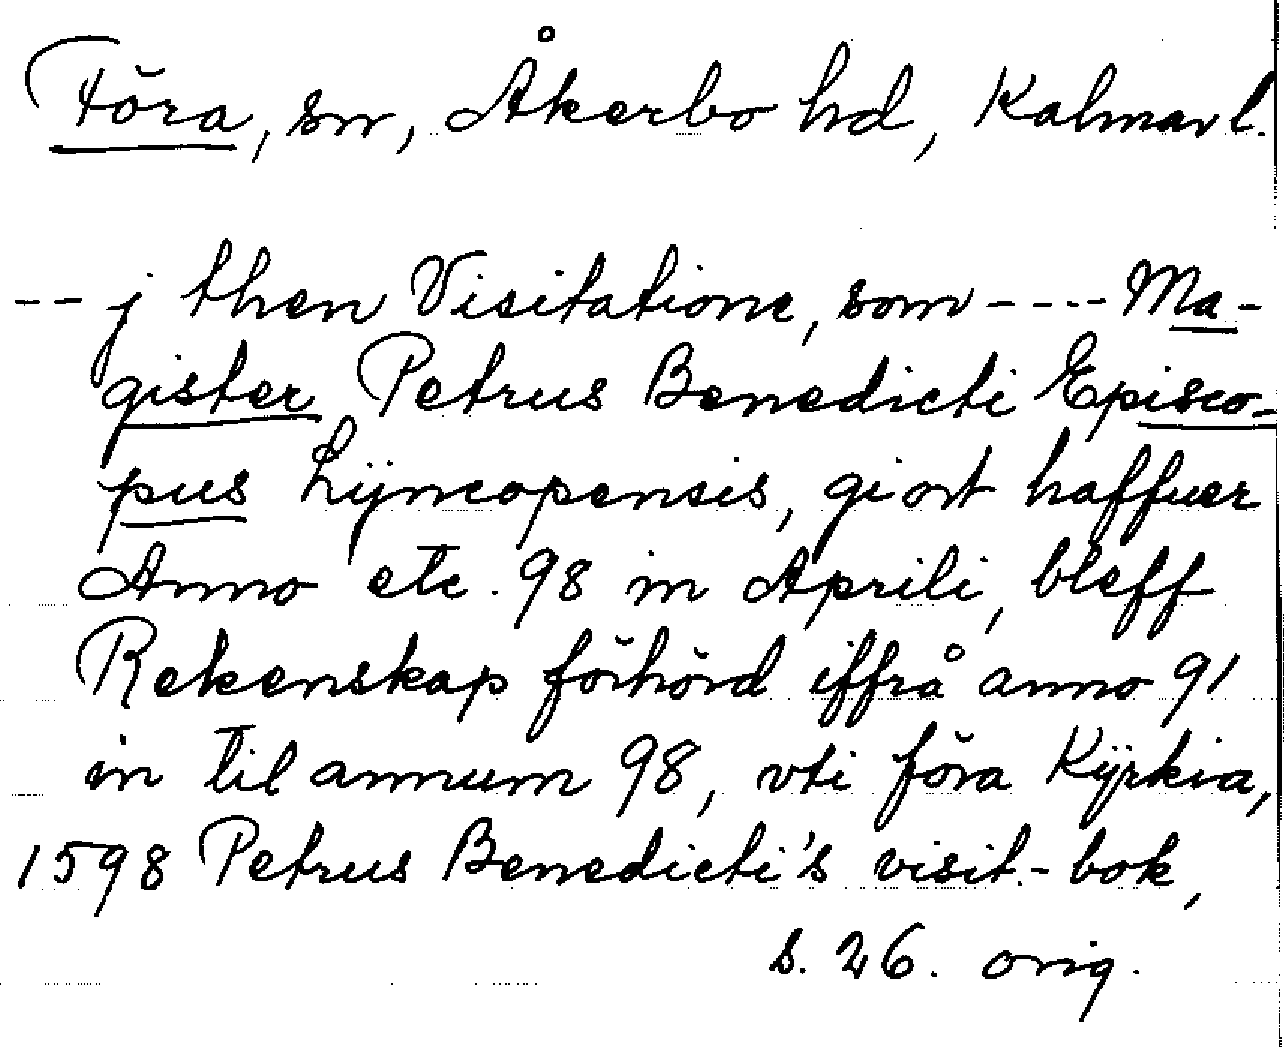 Föra, sn, Åkerbo hd, Kalmar l.
-- j then Visitatione, som ---- Ma-
gister Petrus Benedicti Episco-
pus Lÿncopensis, giort haffuer
Anno etc. 98 in Aprili, bleff
Rekenskap förhörd iffrå anno 91
in til annum 98, vti föra Kÿrkia,
1598 Petrus Benedicti's visit.-bok,
s. 26. orig.